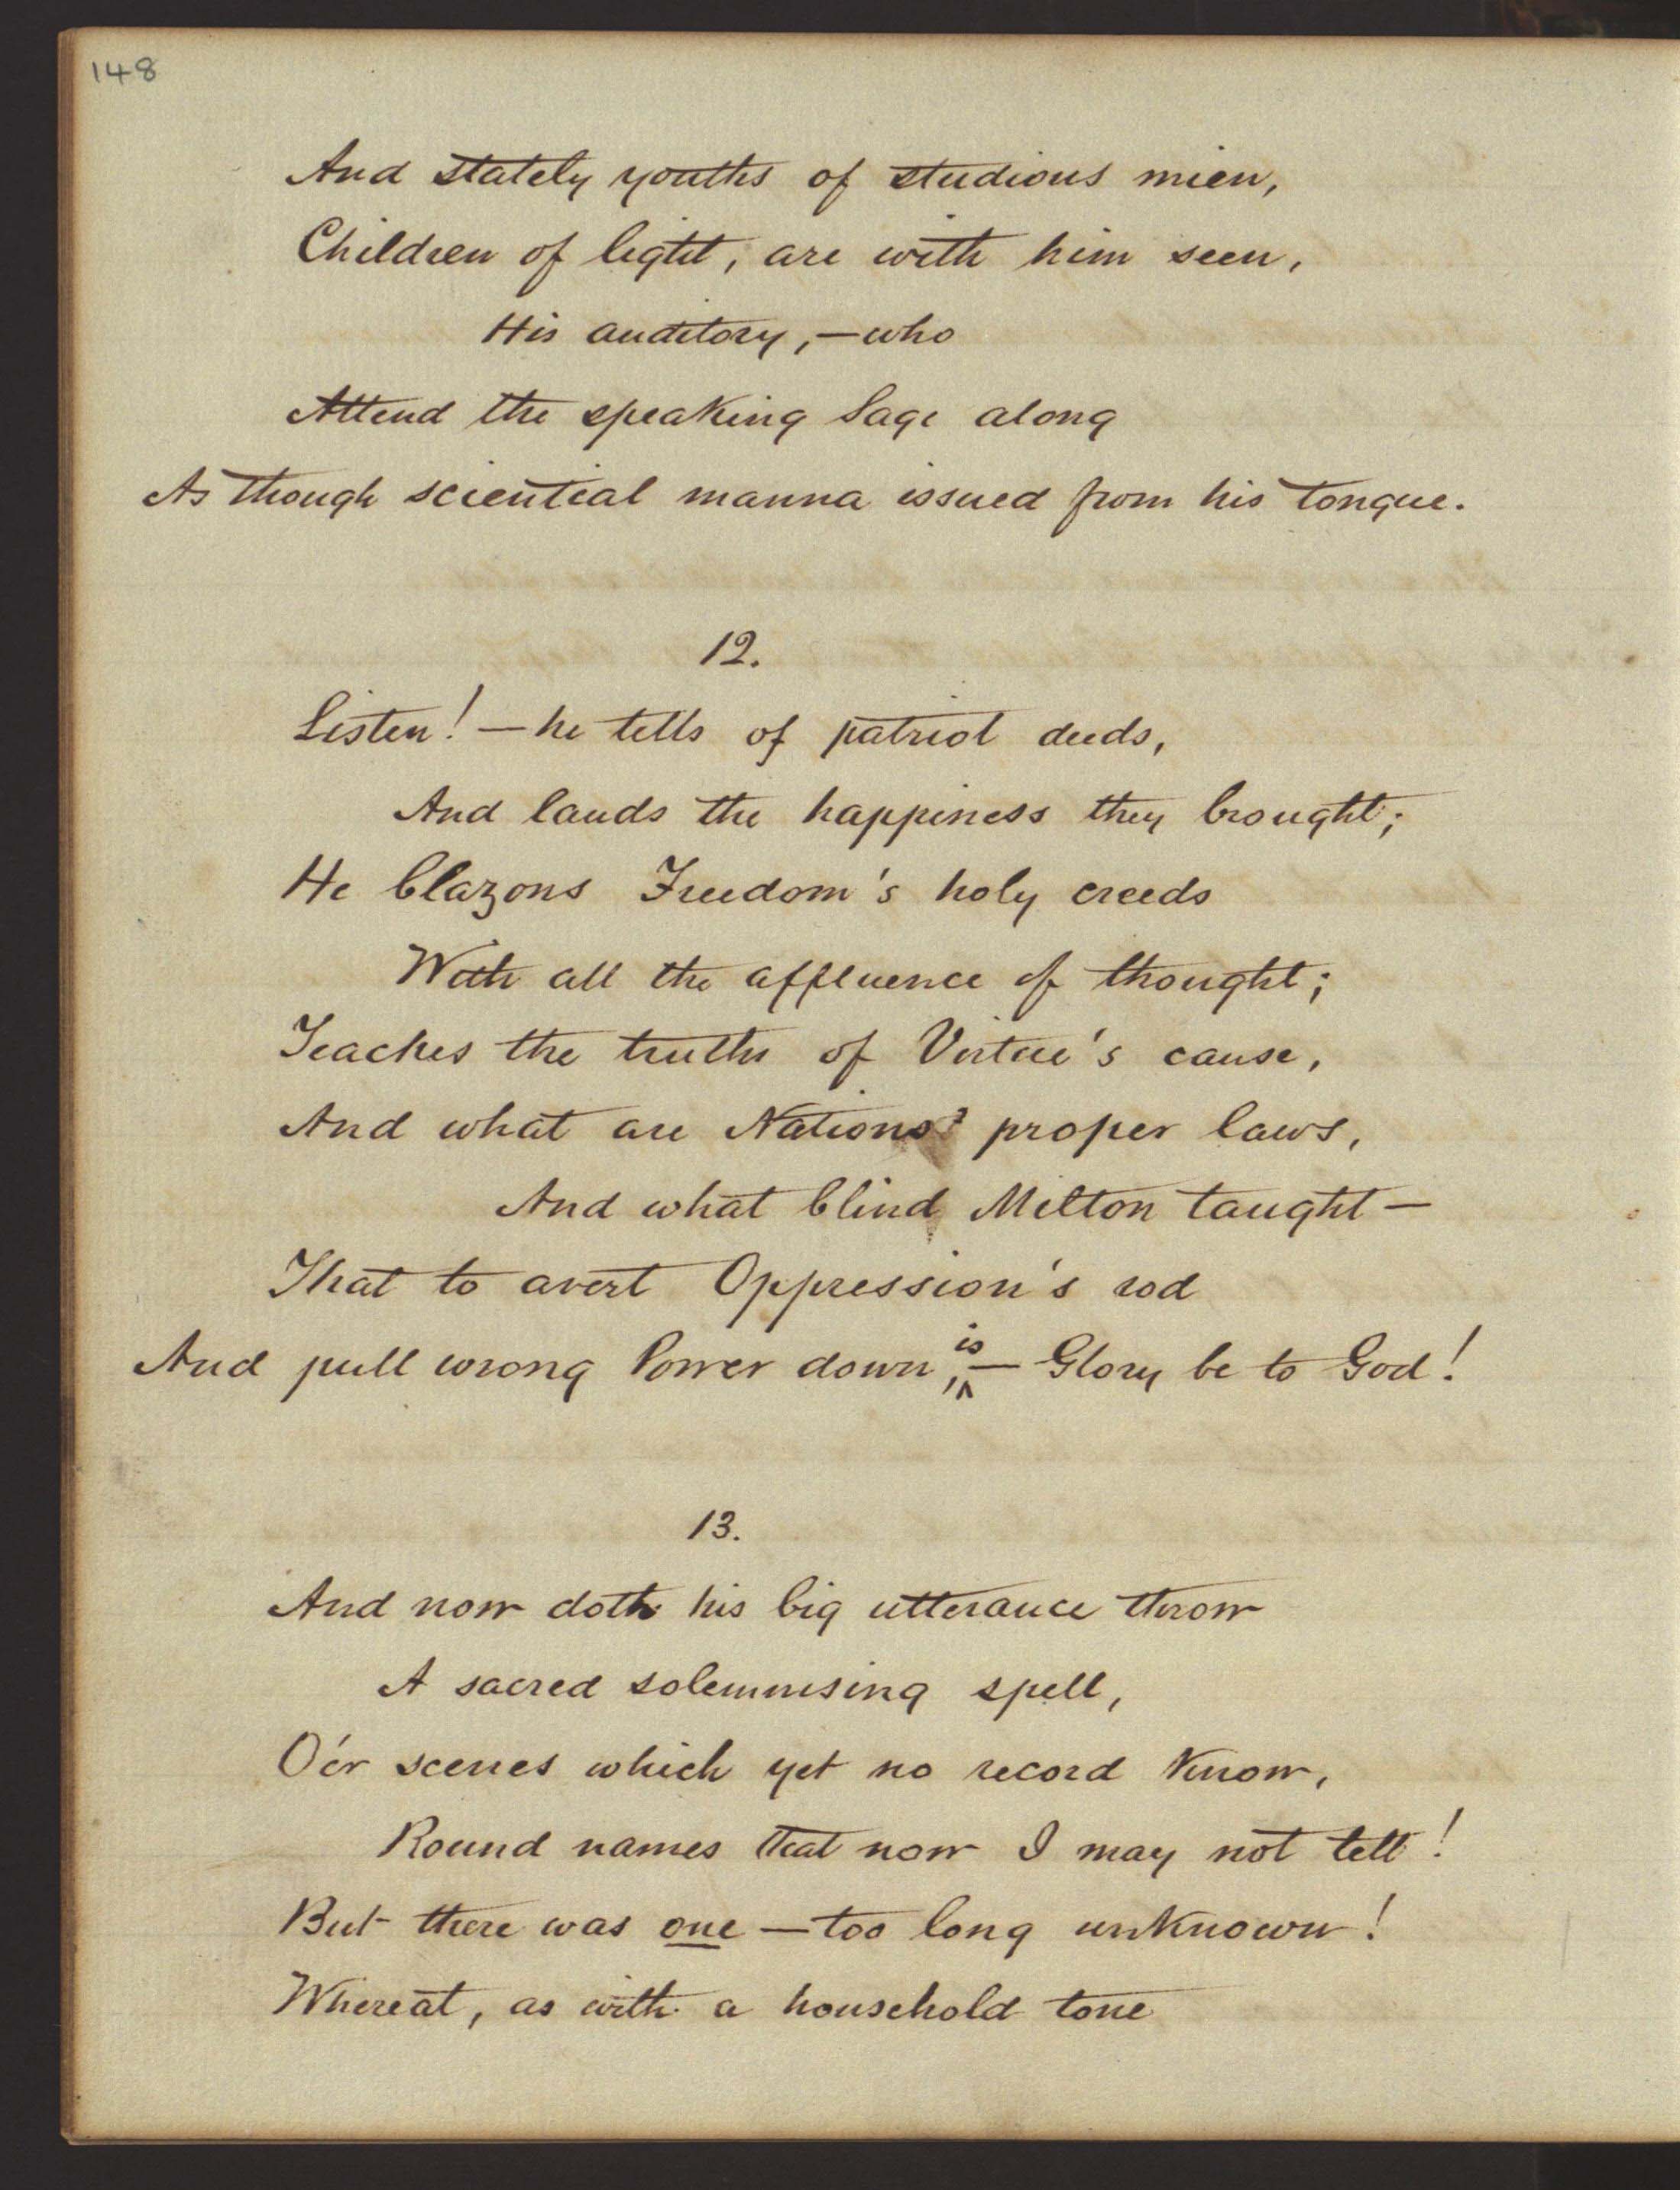 148
And stately youths of studious mien,
Children of light, are with him seen,
His auditory, — who
Attend the speaking Sage along
As though sciential manna issued from his tongue.
12.
Listen! — he tells of patriot deeds,
And lauds the happiness they brought;
He blazons Freedom's holy creeds
With all the affluence of thought;
Teaches the truths of Virtue's cause,
And what are Nations' proper laws,
And what blind Milton taught —
That to avert Oppression's rod
And pull wrong Power down, is — Glory be to God!
13.
And now doth his big utterance throw
A sacred solemnising spell,
O'er scenes which yet no record know,
Round names that now I may not tell!
But there was one — too long unknown!
Whereat, as with a household tone